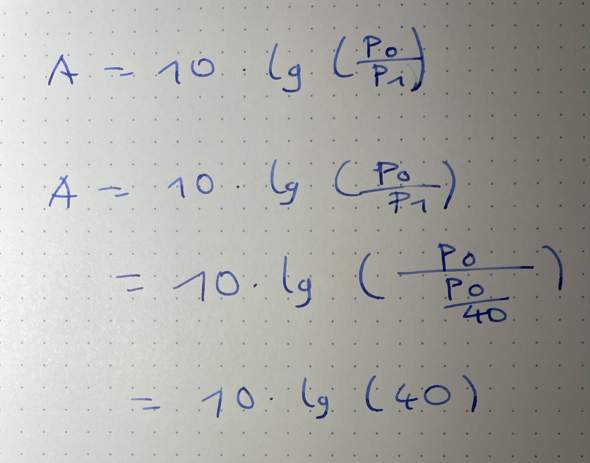 A = 10 · lg (P₀/P₁)
A = 10 · lg (P₀/P₁)
= 10 · lg (P₀/(P₀/40))
= 10 · lg (40)